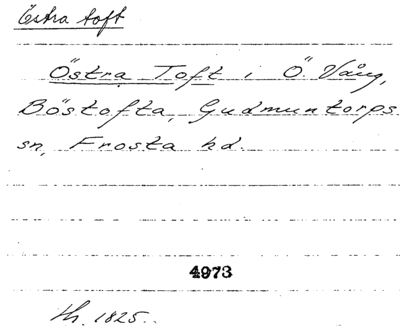 Östra toft
Östra Toft i Ö. Vång,
Böstofta, Gudmuntorps
sn, Frosta hd.
4973
th. 1825.